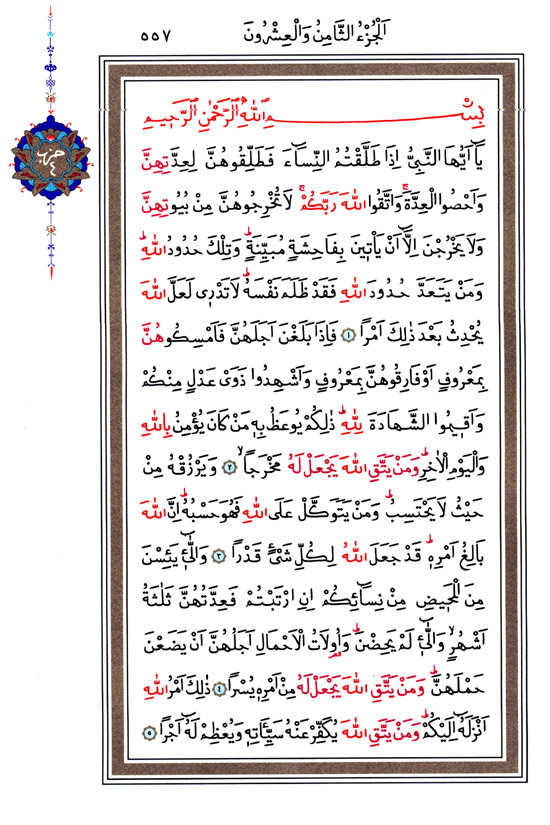 اَلْجُزْءُ الثَّامِنُ وَالْعِشْرُونَ
٥٥٧
حزب
٤
بِسْمِ اللّٰهِ الرَّحْمٰنِ الرَّحٖيمِ
يَٓا اَيُّهَا النَّبِيُّ اِذَا طَلَّقْتُمُ النِّسَٓاءَ فَطَلِّقُوهُنَّ لِعِدَّتِهِنَّ
وَاَحْصُوا الْعِدَّةَۚ وَاتَّقُوا اللّٰهَ رَبَّكُمْۚ لَا تُخْرِجُوهُنَّ مِنْ بُيُوتِهِنَّ
وَلَا يَخْرُجْنَ اِلَّٓا اَنْ يَأْتٖينَ بِفَاحِشَةٍ مُبَيِّنَةٍؕ وَتِلْكَ حُدُودُ اللّٰهِؕ
وَمَنْ يَتَعَدَّ حُدُودَ اللّٰهِ فَقَدْ ظَلَمَ نَفْسَهُؕ لَا تَدْرٖى لَعَلَّ اللّٰهَ
يُحْدِثُ بَعْدَ ذٰلِكَ اَمْرًا ﴿١﴾ فَاِذَا بَلَغْنَ اَجَلَهُنَّ فَاَمْسِكُوهُنَّ
بِمَعْرُوفٍ اَوْ فَارِقُوهُنَّ بِمَعْرُوفٍ وَاَشْهِدُوا ذَوَىْ عَدْلٍ مِنْكُمْ
وَاَقٖيمُوا الشَّهَادَةَ لِلّٰهِؕ ذٰلِكُمْ يُوعَظُ بِهٖ مَنْ كَانَ يُؤْمِنُ بِاللّٰهِ
وَالْيَوْمِ الْاٰخِرِؕ وَمَنْ يَتَّقِ اللّٰهَ يَجْعَلْ لَهُ مَخْرَجًاۙ ﴿٢﴾ وَيَرْزُقْهُ مِنْ
حَيْثُ لَا يَحْتَسِبُؕ وَمَنْ يَتَوَكَّلْ عَلَى اللّٰهِ فَهُوَ حَسْبُهُؕ اِنَّ اللّٰهَ
بَالِغُ اَمْرِهٖؕ قَدْ جَعَلَ اللّٰهُ لِكُلِّ شَيْءٍ قَدْرًا ﴿٣﴾ وَالّٰٓئٖ يَئِسْنَ
مِنَ الْمَحٖيضِ مِنْ نِسَٓائِكُمْ اِنِ ارْتَبْتُمْ فَعِدَّتُهُنَّ ثَلٰثَةُ
اَشْهُرٍۙ وَالّٰٓئٖ لَمْ يَحِضْنَؕ وَاُولَاتُ الْاَحْمَالِ اَجَلُهُنَّ اَنْ يَضَعْنَ
حَمْلَهُنَّؕ وَمَنْ يَتَّقِ اللّٰهَ يَجْعَلْ لَهُ مِنْ اَمْرِهٖ يُسْرًا ﴿٤﴾ ذٰلِكَ اَمْرُ اللّٰهِ
اَنْزَلَهُٓ اِلَيْكُمْؕ وَمَنْ يَتَّقِ اللّٰهَ يُكَفِّرْ عَنْهُ سَيِّـَٔاتِهٖ وَيُعْظِمْ لَهُٓ اَجْرًا ﴿٥﴾